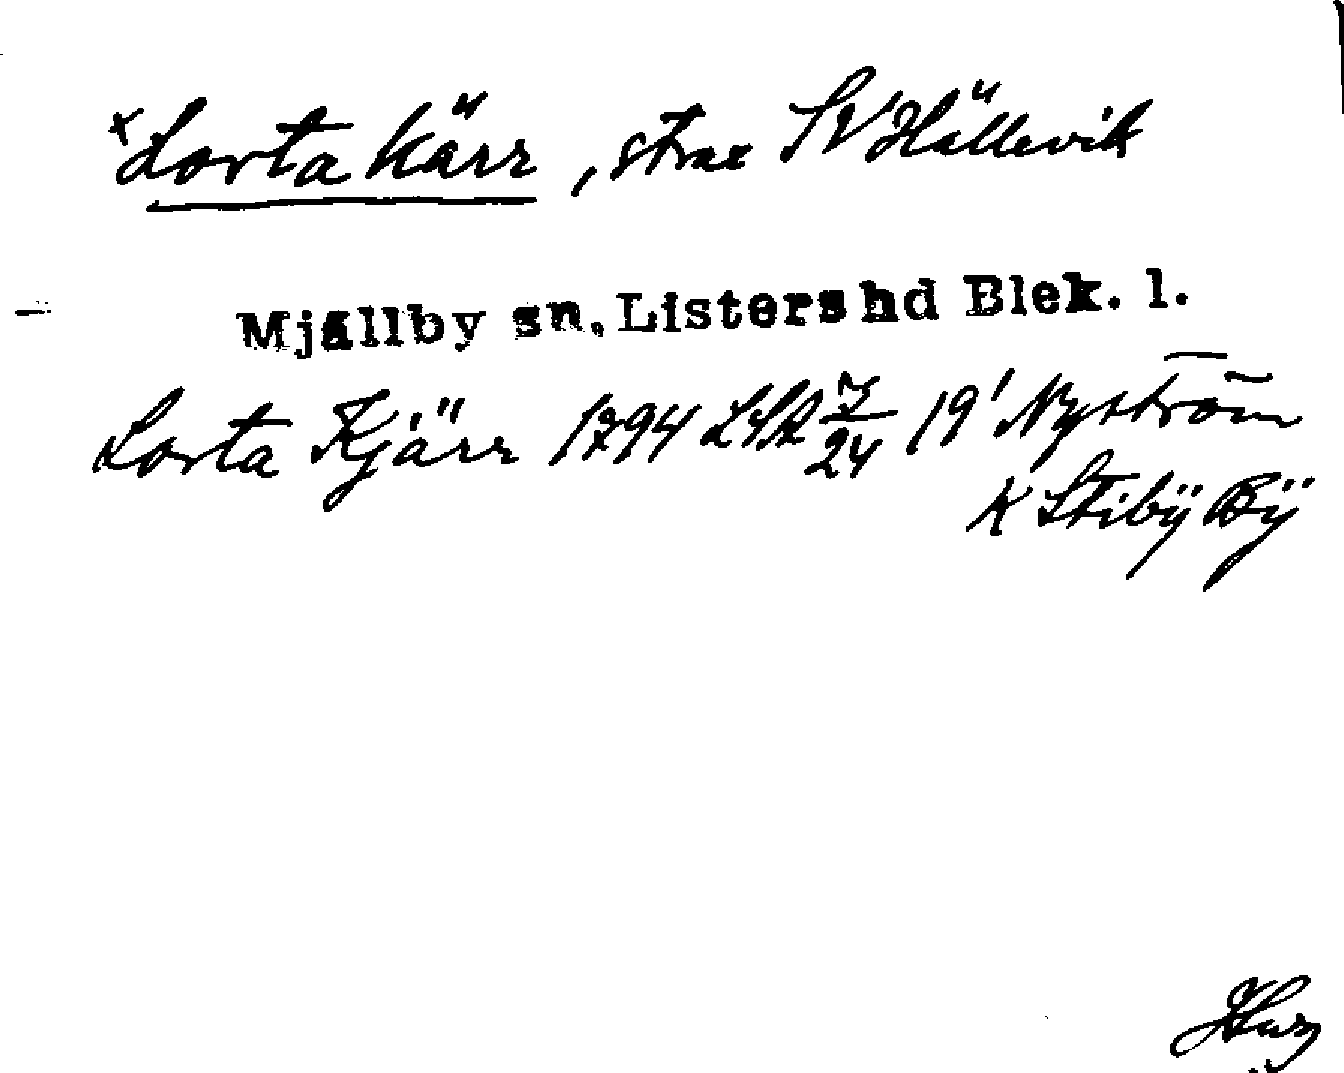 x Lorta kärr, strax SV Hällevik
Mjällby sn. Listers hd Blek. l.
Lorta Kjärr 1794 LSA 7/24 19' Nyström
K Stibÿ Bÿ